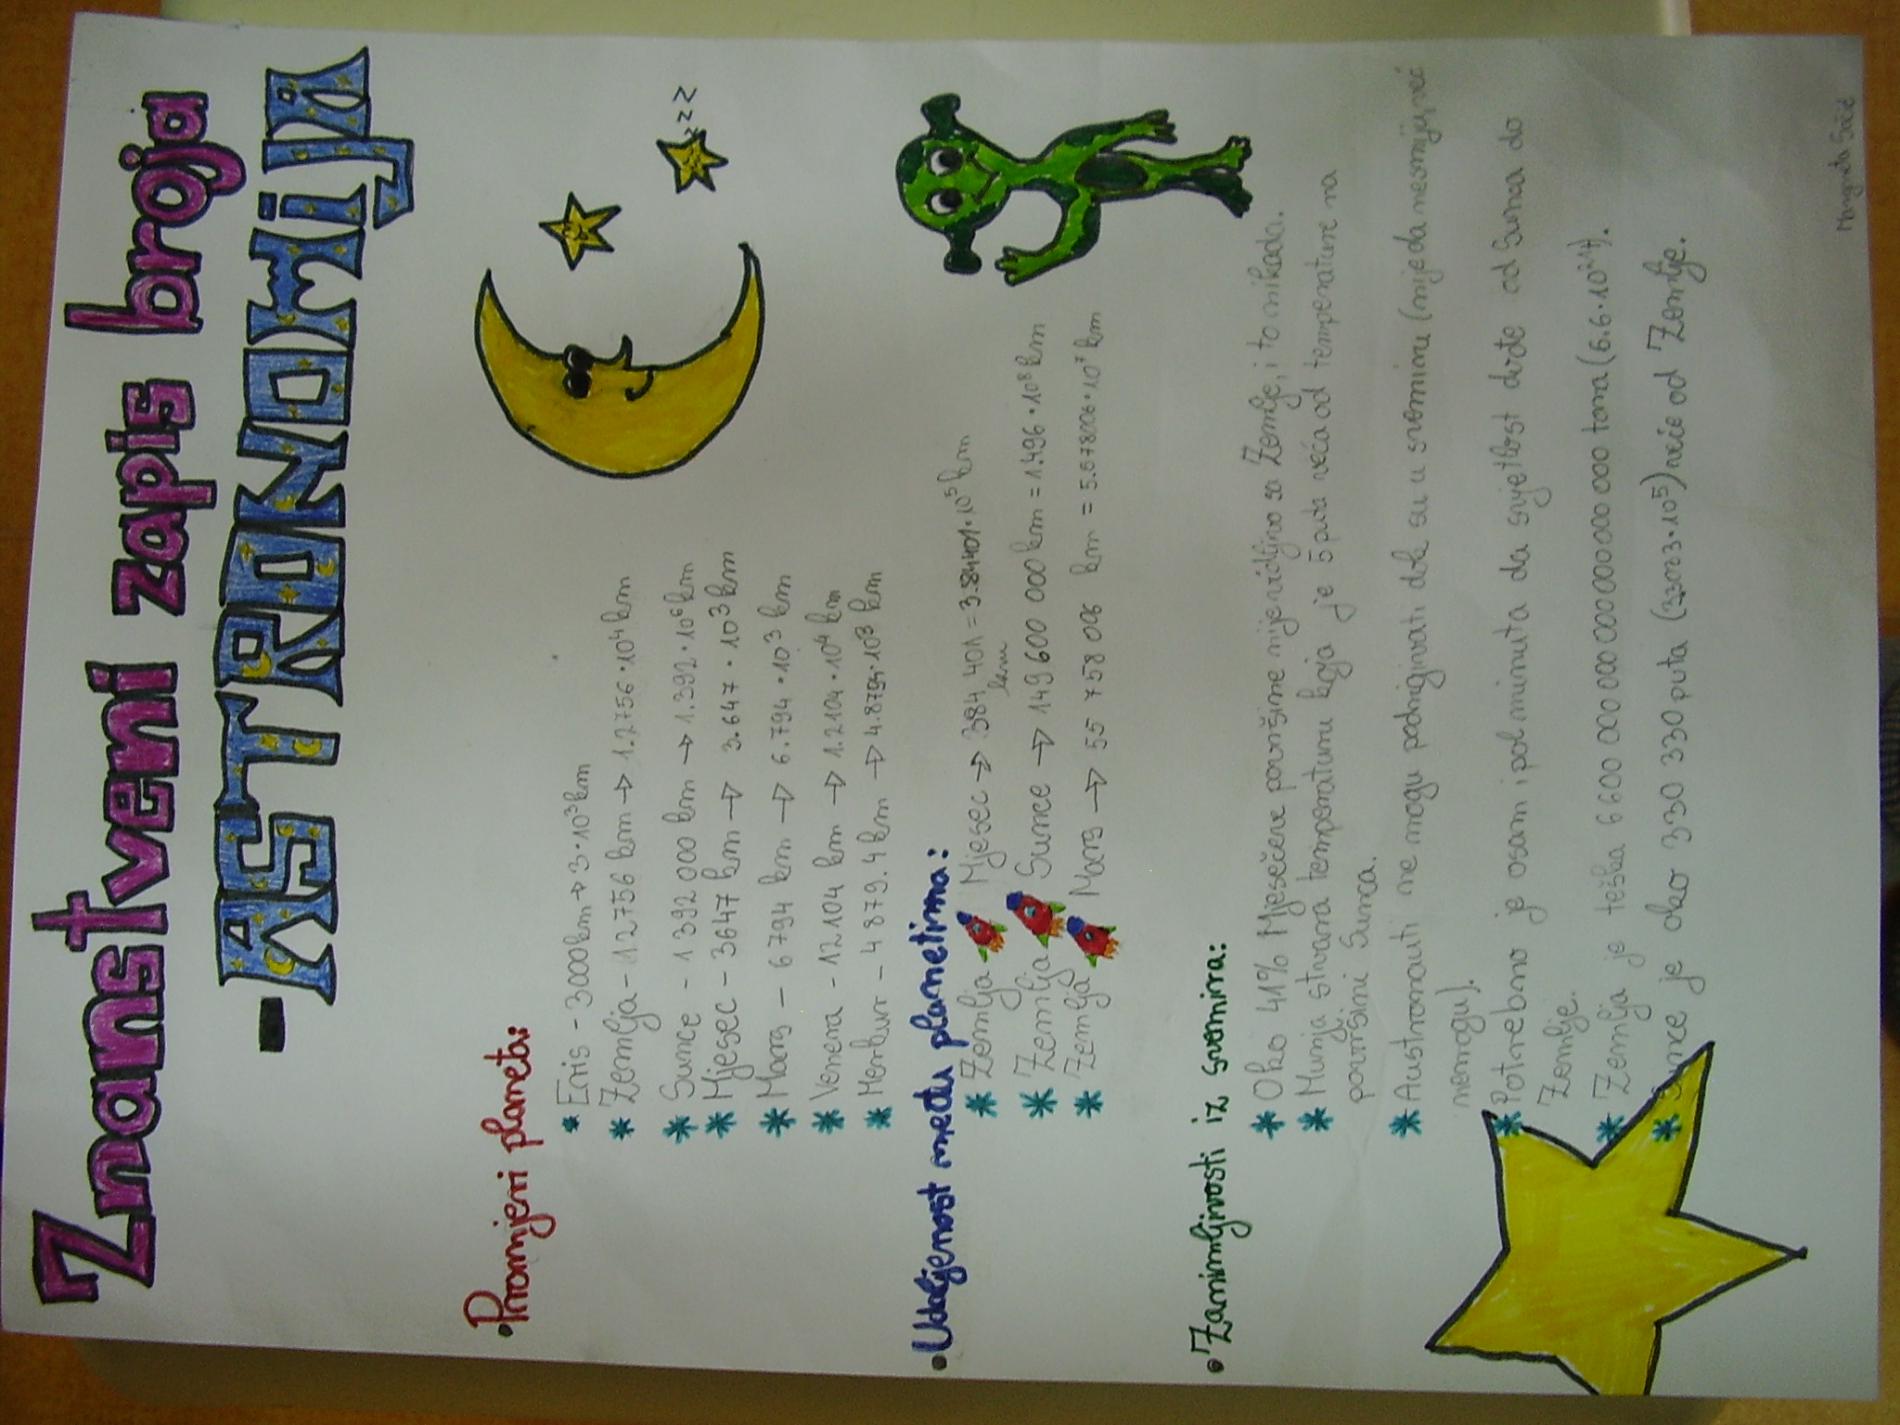 Znanstveni zapis broja
- ASTRONOMiJA
• Promjeri planeta:
* Eris - 3000km → 3·10³km
* Zemlja - 12756 km → 1.2756·10⁴km
* Sunce - 1392000 km → 1.392·10⁶km
* Mjesec - 3647 km → 3.647·10³km
* Mars - 6794 km → 6.794·10³ km
* Venera - 12104 km → 1.2104·10⁴km
* Merkur - 4879.4km → 4.8794·10³ km
• Udaljenost među planetima:
* Zemlja Mjesec → 384 401 = 3.84401·10⁵km
km
* Zemlja Sunce → 149 600 000km = 1.496·10⁸km
* Zemlja Mars → 55 758 006 km = 5.5758006·10⁷km
• Zanimljivosti iz svemira:
* Oko 41% Mjesečeve površine nije vidljivo sa Zemlje, i to nikada.
* Munja stvara temperaturu koja je 5 puta veća od temperature na
površini Sunca.
* Austronauti ne mogu podrigivati dok su u svemiru (nije da nesmiju, već
nemogu).
* Potrebno je osam i pol minuta da svjetlost dođe od Sunca do
Zemlje.
* Zemlja je teška 6 600 000 000 000 000 000 000 tona (6.6·10²¹).
* Sunce je oko 330 330 puta (3.3033·10⁵) veće od Zemlje.
zzZ